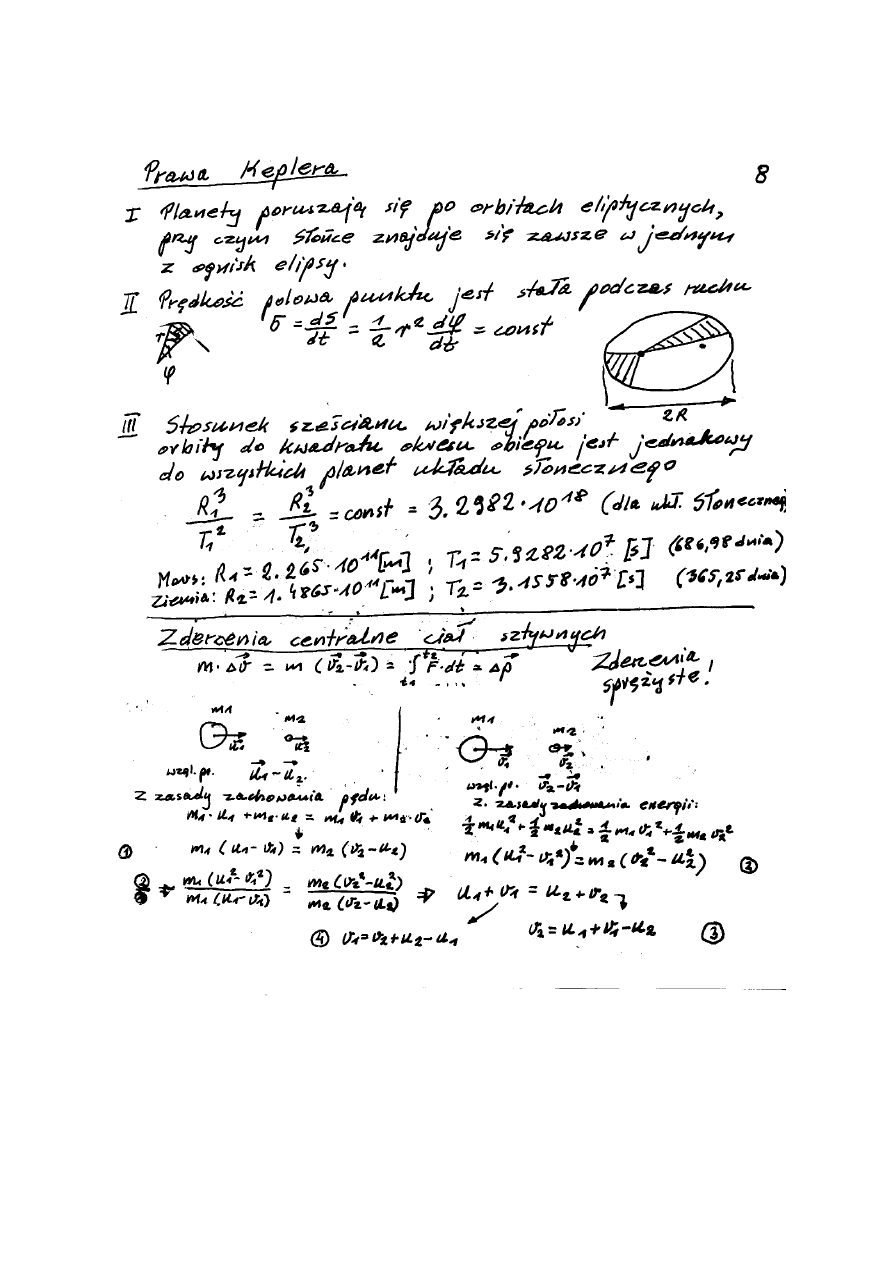 Prawa Keplera 8
I Planety poruszają się po orbitach eliptycznych,
przy czym Słońce znajduje się zawsze w jednym
z ognisk elipsy.
II Prędkość polowa punktu jest stała podczas ruchu
σ = dS/dt = 1/2 r² dφ/dt = const
r S
φ
2R
III Stosunek sześcianu większej półosi
orbity do kwadratu okresu obiegu jest jednakowy
do wszystkich planet układu słonecznego
R₁³/T₁² = R₂³/T₂³ = const = 3.2982·10¹⁸ (dla ukł. Słoneczneg
Mars: R₁ = 2.265·10¹¹[m] ; T₁ = 5.9282·10⁷ [s] (686,98 dnia)
Ziemia: R₂ = 1.4865·10¹¹[m] ; T₂ = 3.1558·10⁷ [s] (365,25 dnia)
Zderzenia centralne ciał sztywnych
m·Δv⃗ = m (v⃗₂-v⃗₁) = ∫t₁t₂ F⃗·dt = Δp⃗
Zderzenia
sprężyste!
m₁ m₂
u⃗₁ u⃗₂
wzgl. pr. u⃗₁ - u⃗₂
m₁ m₂
v⃗₁ v⃗₂
wzgl. pr. v⃗₂ - v⃗₁
Z zasady zachowania pędu:
m₁·u₁ + m₂·u₂ = m₁ v₁ + m₂·v₂
① m₁ (u₁ - v₁) = m₂ (v₂ - u₂)
z. zasady zachowania energii:
1/2 m₁u₁² + 1/2 m₂u₂² = 1/2 m₁v₁² + 1/2 m₂v₂²
m₁ (u₁² - v₁²) = m₂ (v₂² - u₂²) ②
②/① ⇒ m₁(u₁² - v₁²)/m₁(u₁ - v₁) = m₂(v₂² - u₂²)/m₂(v₂ - u₂) ⇒ u₁ + v₁ = u₂ + v₂
④ v₁ = v₂ + u₂ - u₁ v₂ = u₁ + v₁ - u₂ ③